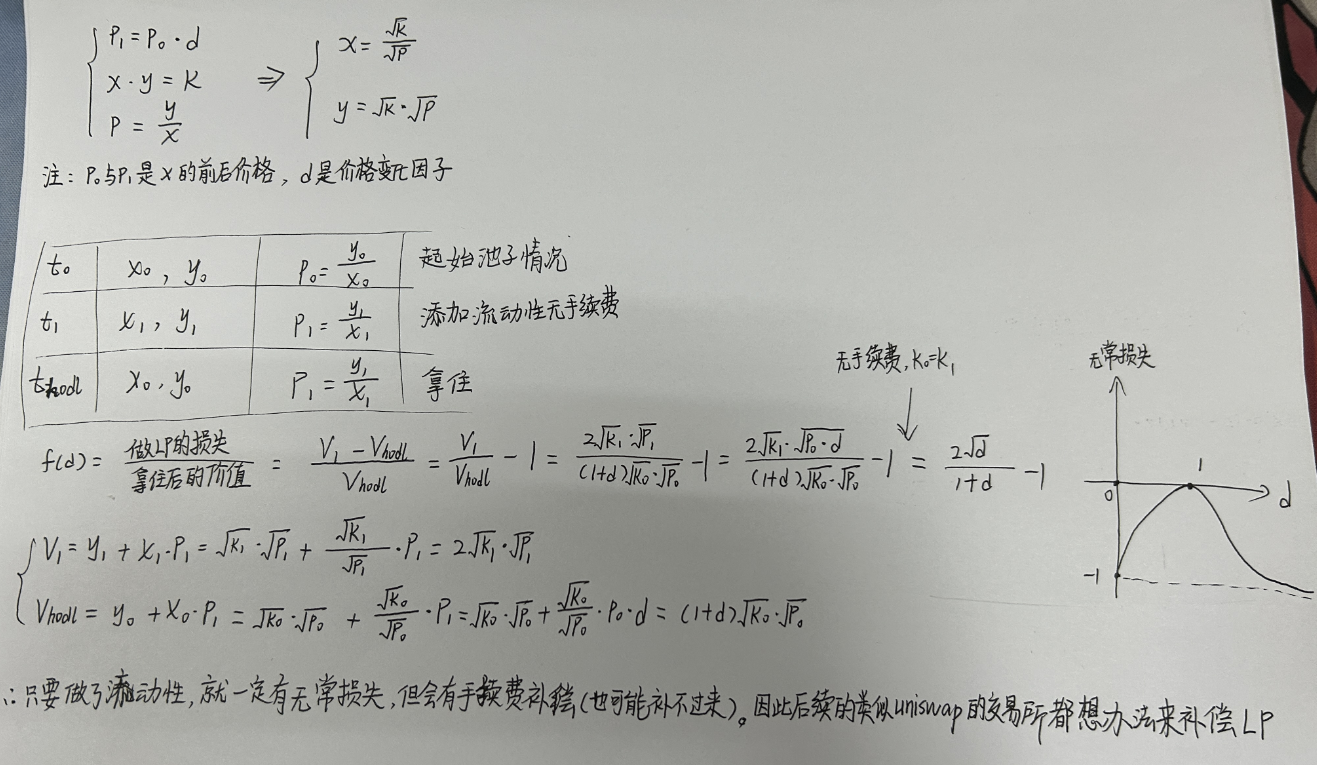 P₁=P₀·d
x·y=K
P=y/x
⇒
x=√K/√P
y=√K·√P
注：P₀与P₁是X的前后价格，d是价格变化因子
t₀ x₀，y₀ P₀=y₀/x₀ 起始池子情况
t₁ x₁，y₁ P₁=y₁/x₁ 添加流动性无手续费
t_hodl x₀，y₀ P₁=y₁/x₁ 拿住
无手续费，K₀=K₁
f(d)=做LP的损失/拿住后的价值=(V₁-Vhodl)/Vhodl=V₁/Vhodl-1=2√K₁·√P₁/((1+d)√K₀·√P₀)-1=2√K₁·√(P₀·d)/((1+d)√K₀·√P₀)-1=2√d/(1+d)-1
无常损失
1
0
d
-1
V₁=y₁+x₁·P₁=√K₁·√P₁+√K₁/√P₁·P₁=2√K₁·√P₁
Vhodl=y₀+x₀·P₁=√K₀·√P₀+√K₀/√P₀·P₁=√K₀·√P₀+√K₀/√P₀·P₀·d=(1+d)√K₀·√P₀
∴只要做了流动性，就一定有无常损失，但会有手续费补偿(也可能补不过来)。因此后续的类似uniswap的交易所都想办法来补偿LP